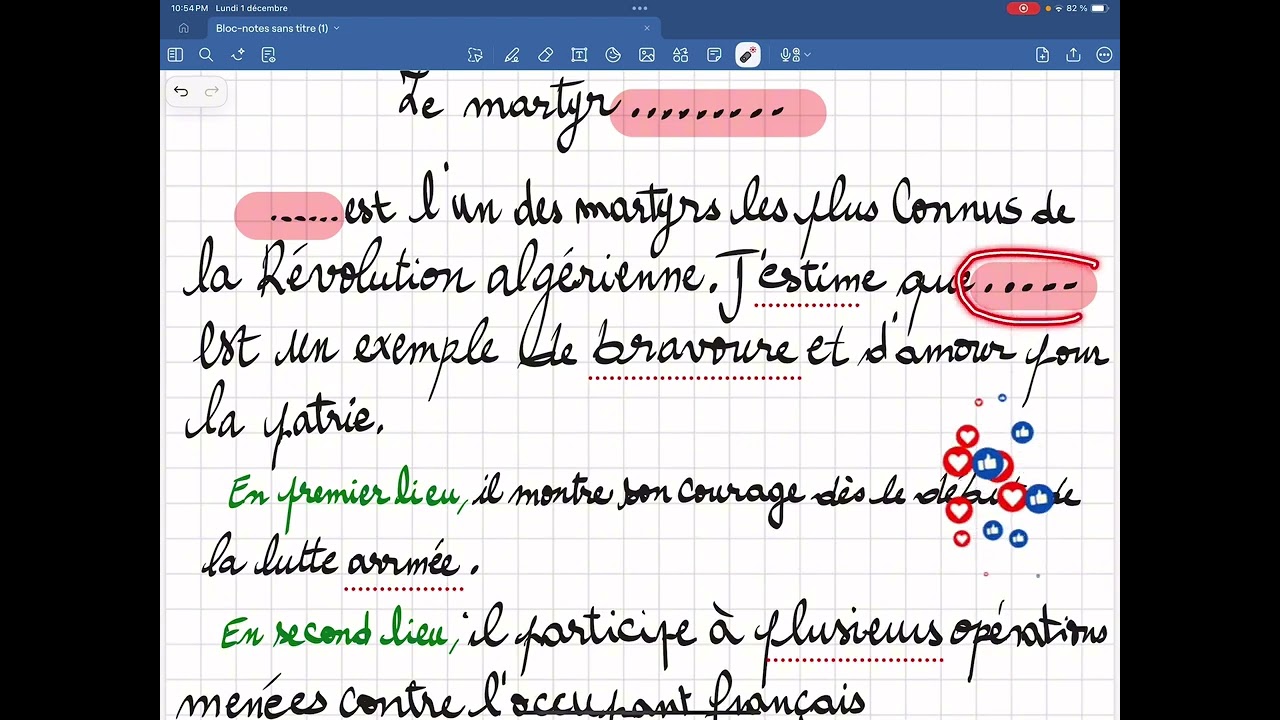 10:54 PM Lundi 1 décembre
82 %
Bloc-notes sans titre (1)
Le martyr .........
......est l'un des martyrs les plus connus de
la Révolution algérienne. J'estime que .....
est un exemple de bravoure et d'amour pour
la patrie.
En premier lieu, il montre son courage dès le début de
la lutte armée.
En second lieu, il participe à plusieurs opérations
menées contre l'occupant français